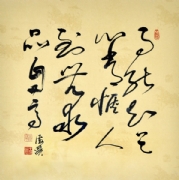 事能知足
心常惬人
到无求
品自高